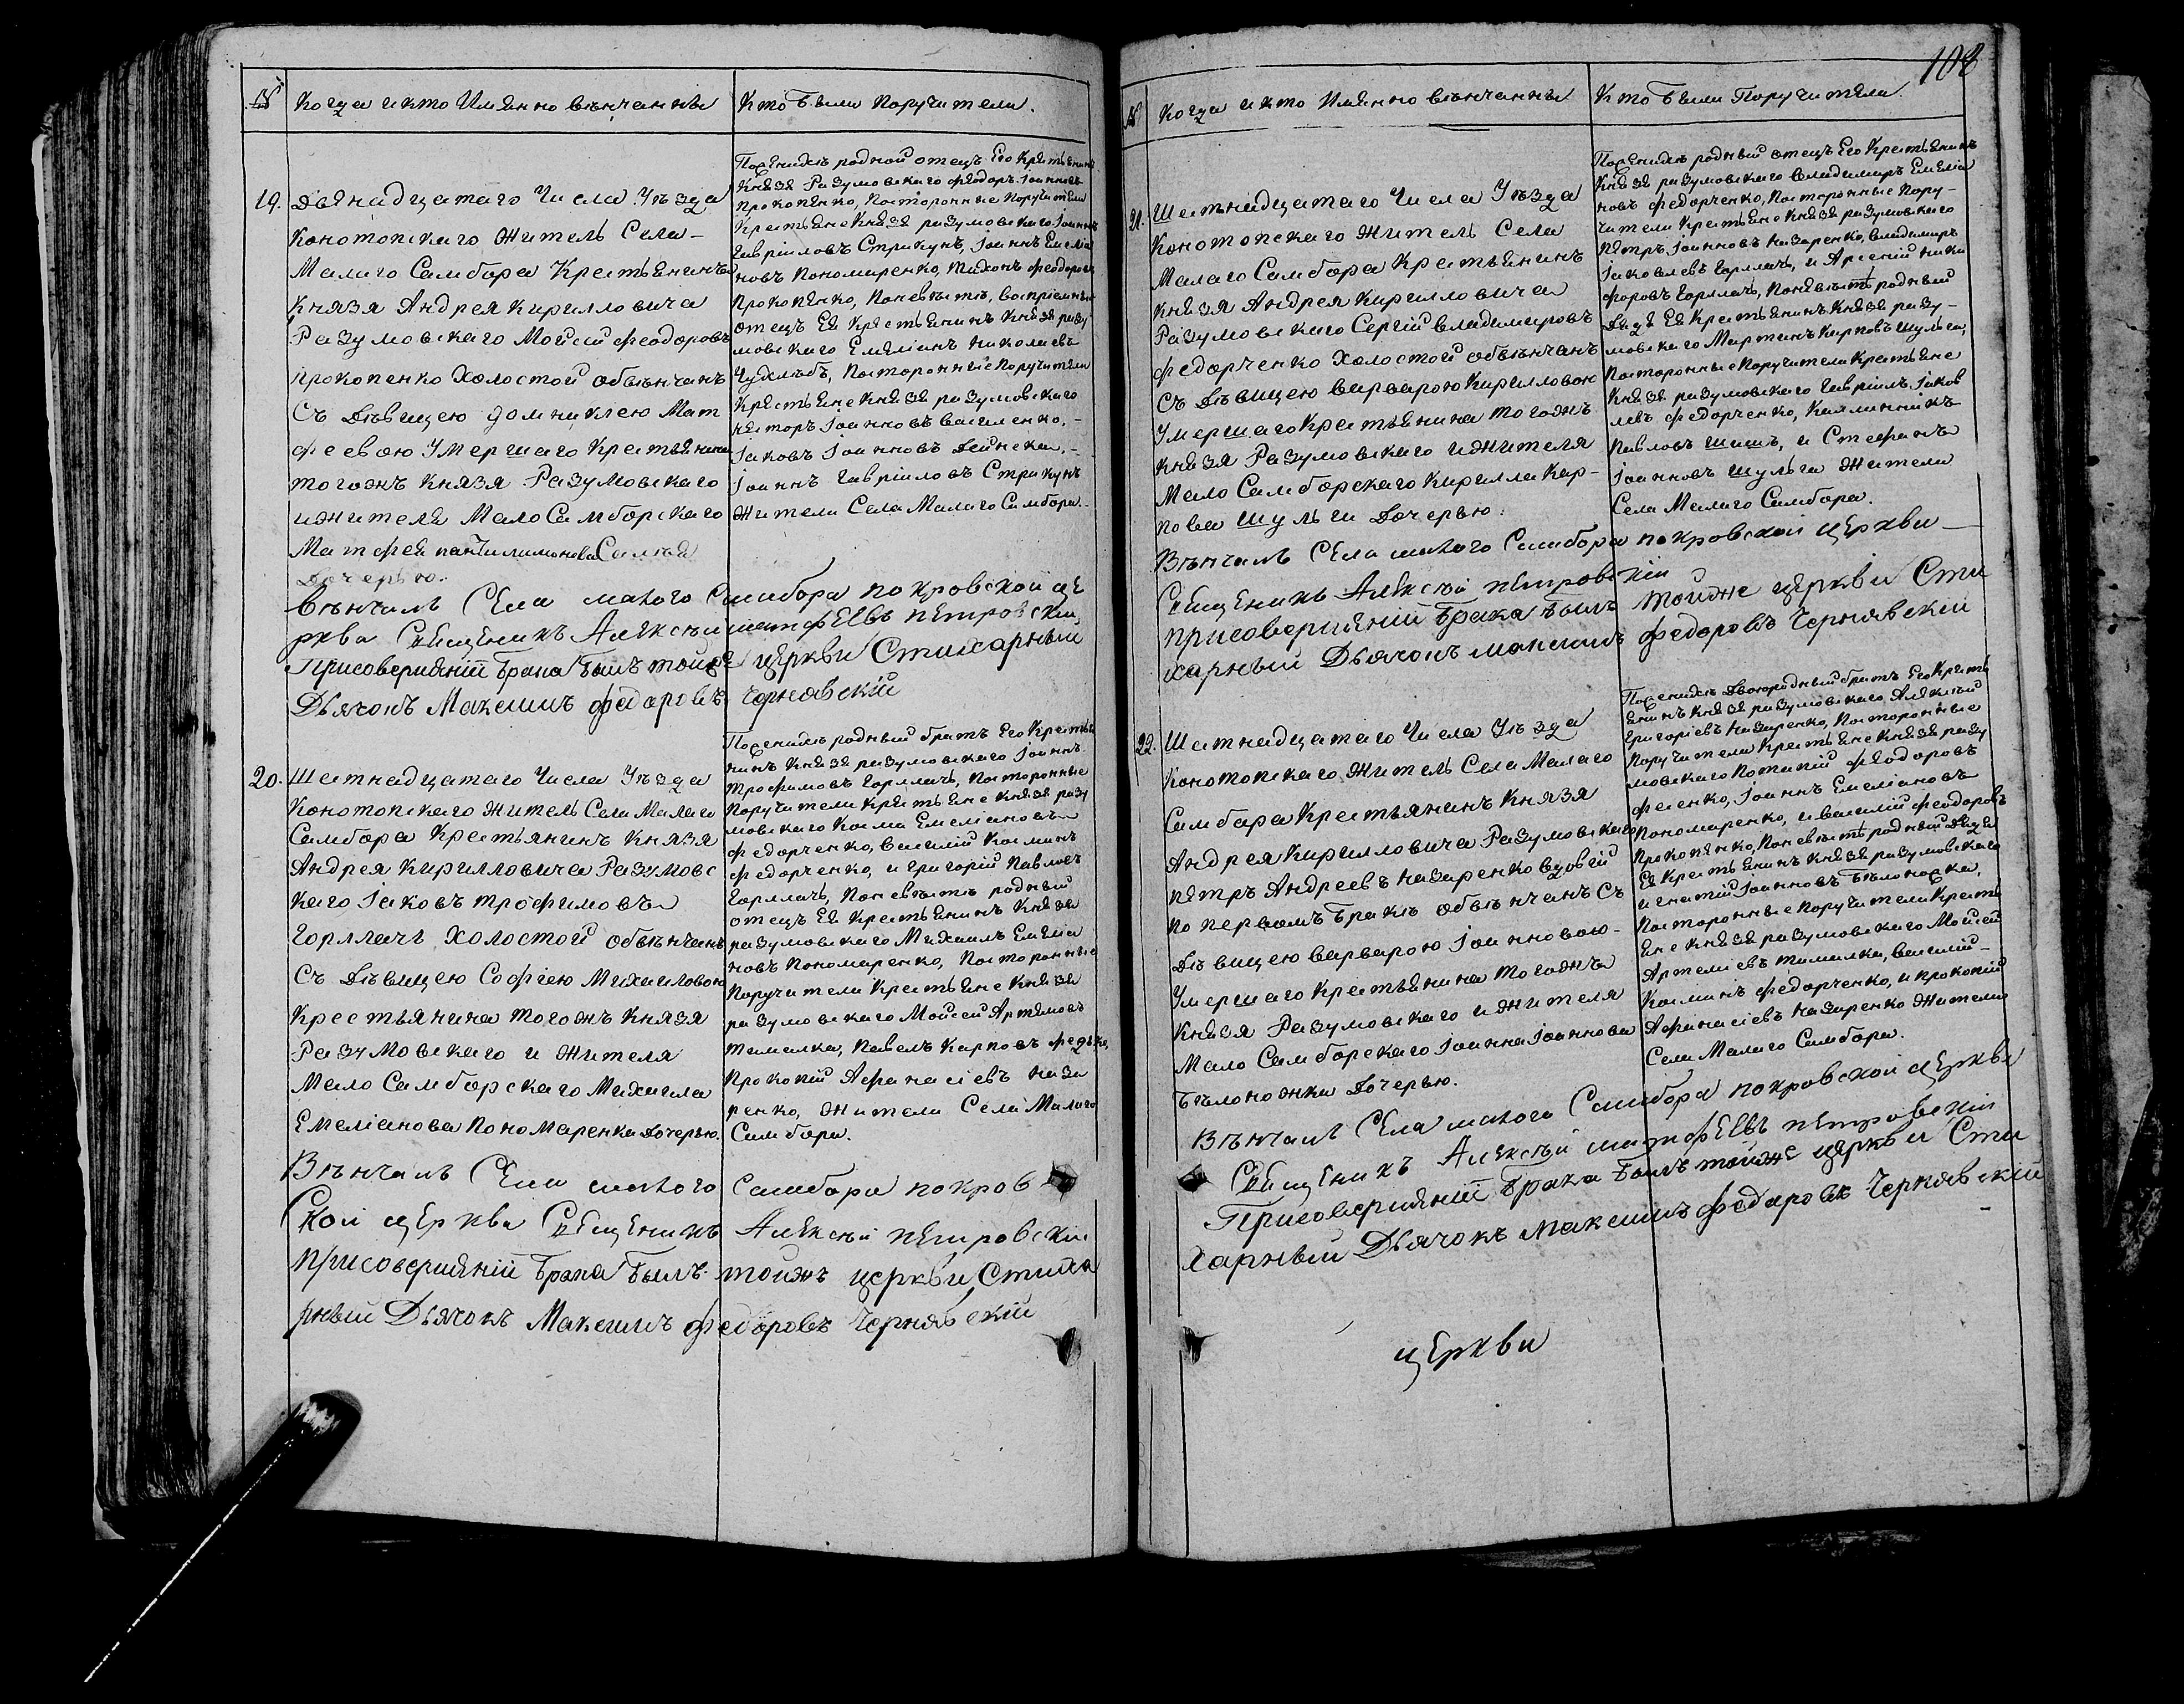 №
Когда и кто Именно вѣнчанны
Кто были поручители.
19.
Двѣнадцатаго Числа Уѣзда
Конотопскаго житель Села
Малаго Самбора Крестьянинъ
Князя Андрея Кирилловича
Разумовскаго Мойсей Феодоровъ
Прокопенко Холостой обвѣнчанъ
Съ Дѣвицею Домникiею Мат
феевою Умершаго Крестьянина
тогожъ Князя Разумовскаго
и жителя Мало Самборскаго
Матфея
Дочерью.
Поженихѣ родной отецъ Его Крестьянинъ
Князя Разумовскаго Феодоръ Iоанновъ
Прокопенко, Посторонные Поручители
Крестьяне Князя разумовскаго Iоаннъ
Гаврiиловъ Стрикунъ, Iоаннъ Емелiа
новъ Пономаренко, Тихонъ Феодоровъ
Прокопенко, Поневѣстѣ, воспрiемный
отецъ Ея Крестьянинъ Князя разу
мовскаго Емелiанъ Николаевъ
Посторонные Поручители
Крестьяне Князя разумовскаго
Нестеръ Iоанновъ василенко,
Iаковъ Iоанновъ Дейнека,
Iоаннъ Гаврiиловъ Стрикунъ
Жители Села Малаго Самбора.
Вѣнчалъ Села малого Самбора покровской це
ркви Священикъ Алексѣй матфЕевъ петровскiй
Присовершенiй брака былъ тойже церкви Стихарный
Дьячокъ Максимъ федоровъ Чернявскiй
20.
Шестнадцатаго Числа Уѣзда
Конотопскаго житель Села Малаго
Самбора Крестьянинъ Князя
Андрея Кирилловича Разумовс
каго Iаковъ трофимовъ
Горлачъ Холостой обвѣнчанъ
Съ Дѣвицею Софiею Михаиловою
Крестьянина тогожъ Князя
Разумовскаго и жителя
Мало Самборскаго Михаила
Емелiанова Пономаренка Дочерью.
Поженихѣ родный братъ Его Крестья
нинъ Князя разумовскаго Iоаннъ
трофимовъ Горлачъ, Посторонные
Поручители Крестьяне Князя разу
мовскаго Косма Емелiановъ
Федорченко, василiй Косминъ
Федорченко, и Григорiй Павловъ
Горлачъ, Поневѣстѣ родный
отецъ Ея Крестьянинъ Князя
разумовскаго Михаилъ Емелiа
новъ Пономаренко, Посторонные
Поручители Крестьяне Князя
разумовскаго Мойсей Артемовъ
Тималка, Павелъ Карповъ
Прокопiй Афанасiевъ Наза
ренко, жители Села Малаго
Самбора.
Вѣнчалъ Села малого Самбора покров
ской церкви Священикъ Алексѣй пЕтровскiй
присовершенiй брака былъ тойжъ церкви Стиха
рный Дьячокъ Максимъ федоровъ Чернявскiй
108
№
Когда и кто Именно вѣнчанны
Кто были Поручители
21.
Шестнадцатаго Числа Уѣзда
Конотопскаго житель Села
Малаго Самбора Крестьянинъ
Князя Андрея Кирилловича
Разумовскаго Сергiй владимировъ
Федорченко Холостой обвѣнчанъ
Съ Дѣвицею варварою Кирилловою
Умершаго Крестьянина тогожъ
Князя Разумовскаго и жителя
Мало Самборскаго Кирилла Кар-
пова Шульги Дочерью.
Поженихѣ родный отецъ Его Крестьянинъ
Князя разумовскаго владимиръ Емелiа
новъ Федорченко, Посторонные Пору-
чители Крестьяне Князя разумовскаго
Петръ Iоанновъ Назаренко, владимиръ
Iаковлевъ Горлачъ, и Арсенiй Ники
форовъ Горлачъ, Поневѣстѣ родный
Дядя Ея Крестьянинъ Князя разу-
мовскаго Мартинъ Карповъ Шульга,
Посторонные Поручители Крестьяне
Князя разумовскаго Гаврiилъ Iаков
левъ Федорченко, Каллинникъ
Павловъ Шишъ, и Стефанъ
Iоанновъ Шульга жители
Села Малаго Самбора.
Вѣнчалъ Села малого Самбора покровской церкви
Священикъ Алексѣй пЕтровскiй
присовершенiй брака былъ тойже церкви Сти
харный Дьячокъ максимъ федоровъ Чернявскiй
22.
Шестнадцатаго Числа Уѣзда
Конотопскаго житель Села Малаго
Самбора Крестьянинъ Князя
Андрея Кирилловича Разумовскаго
Петръ Андреевъ Назаренко вдовый
по первомъ бракѣ обвѣнчанъ Съ
Дѣвицею варварою Iоанновою
Умершаго Крестьянина тогожъ
Князя Разумовскаго и жителя
Мало Самборскаго Iоанна Iоаннова
Бѣлоножки Дочерью.
Поженихѣ Двоюродный братъ Его Кресть
янинъ Князя разумовскаго Алексѣй
Григорiевъ Назаренко, Посторонные
Поручители Крестьяне Князя разу
мовскаго Потапiй Феодоровъ
Фесенко, Iоаннъ Емелiановъ
Пономаренко, и василiй Феодоровъ
Прокопенко, Поневѣстѣ родный Дядя
Ея Крестьянинъ Князя разумовскаго
Игнатiй Iоанновъ Бѣлоножка,
Посторонные Поручители Кресть
яне Князя разумовскаго Мойсей
Артемiевъ Тималка, василiй
Косминъ Федорченко, и Прокопiй
Афанасiевъ Назаренко жители
Села Малаго Самбора.
Вѣнчалъ Села малого Самбора покровской церкви
Священикъ Алексѣй матфЕевъ пЕтровскiй
Присовершенiй брака былъ тойже церкви Сти
харный Дьячокъ максимъ федоровъ Чернявскiй
цЕркви